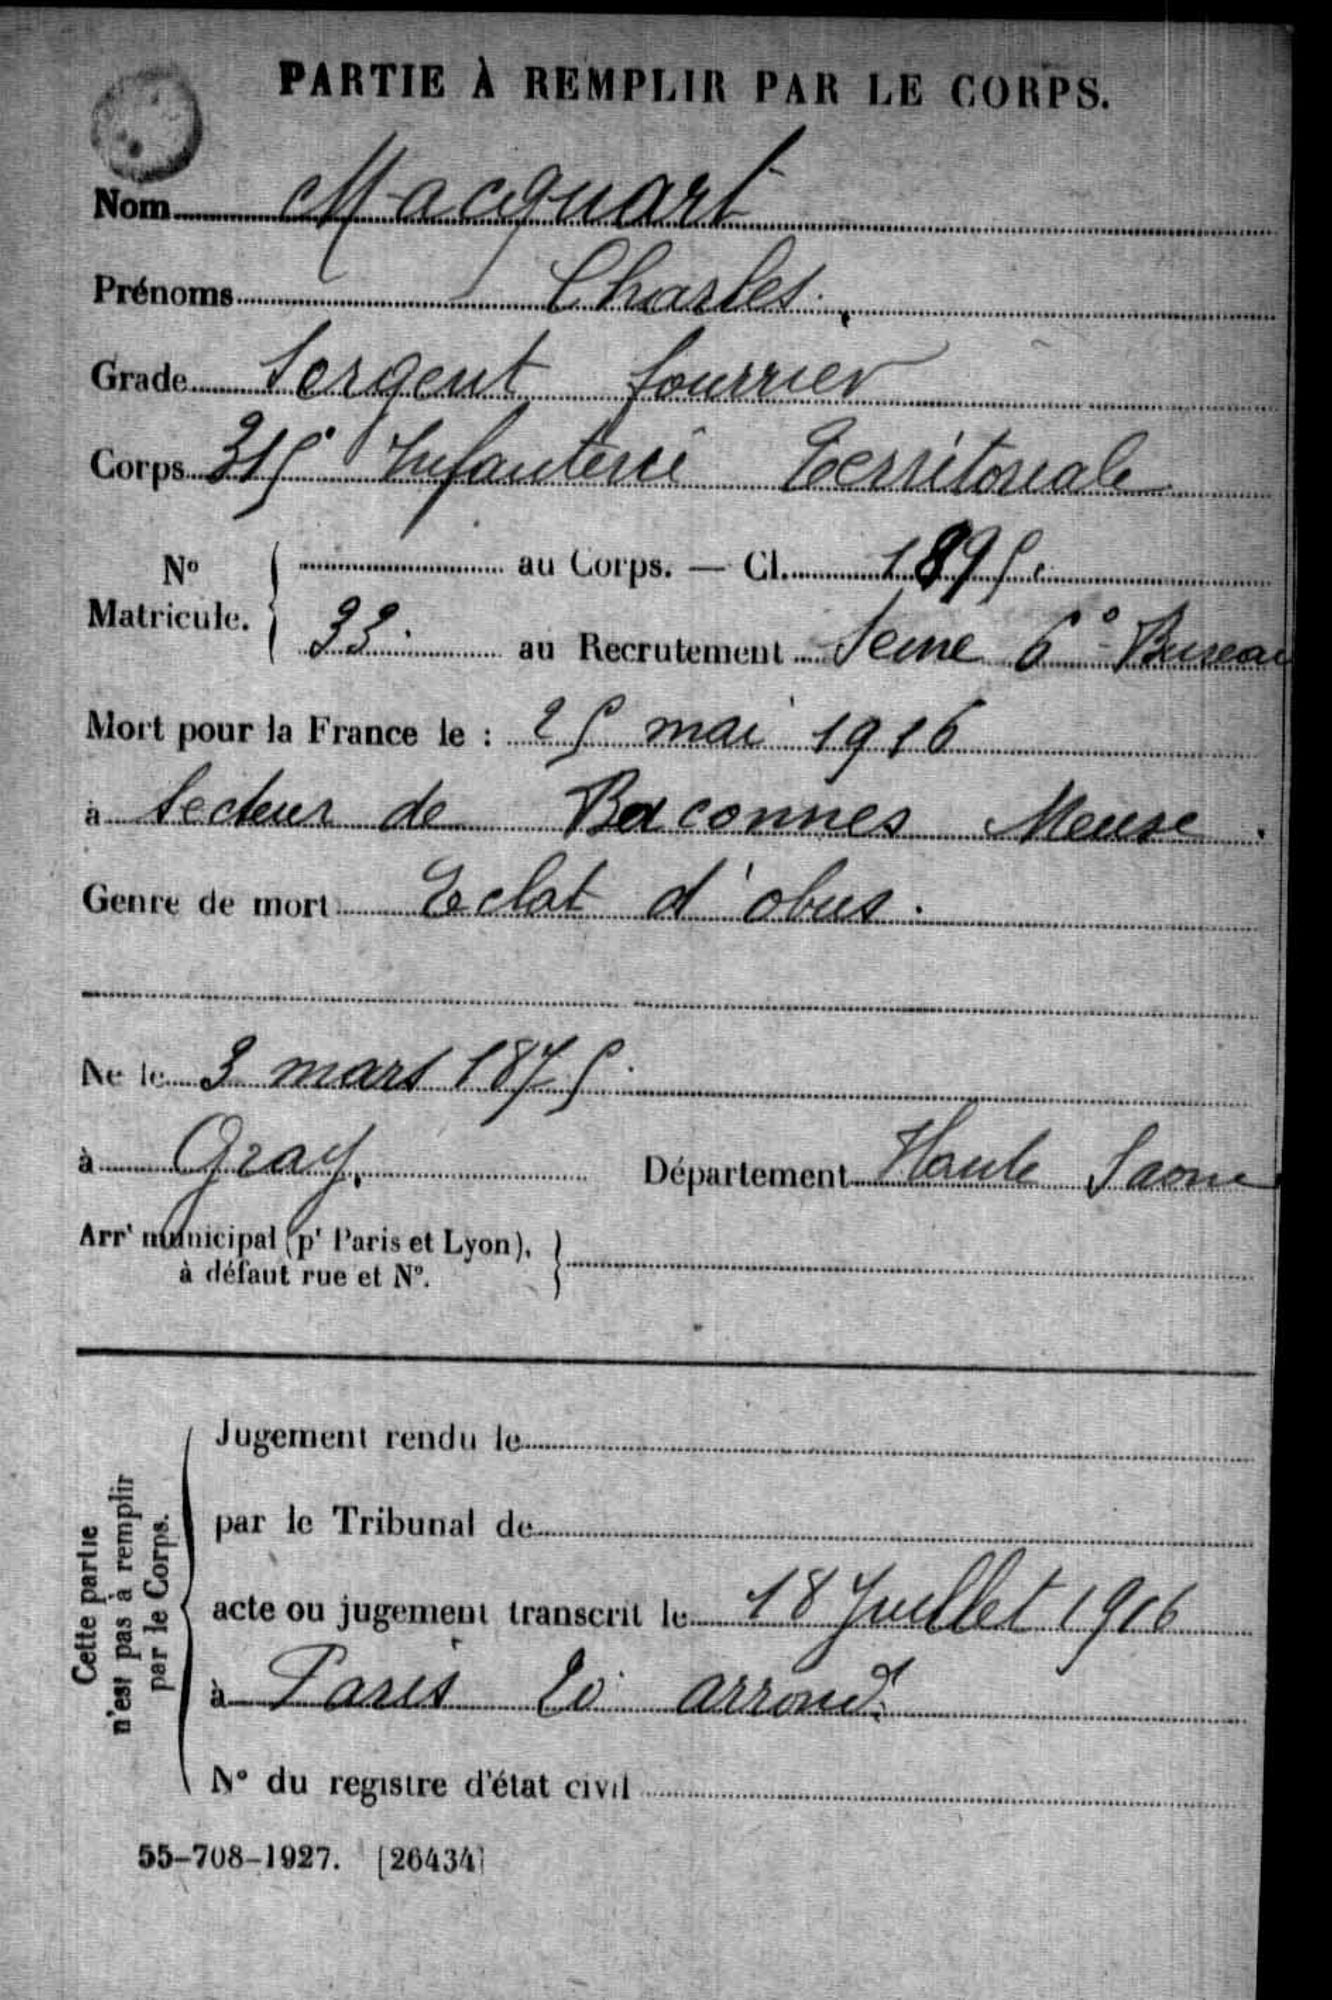 PARTIE À REMPLIR PAR LE CORPS.
Nom Macquart
Prénoms Charles.
Grade Sergent fourrier
Corps 315e Infanterie Territoriale
No Matricule. { au Corps. — Cl. 1895.
33. au Recrutement Seine 6o Bureau
Mort pour la France le : 25 mai 1916
à Secteur de Baconnes Meuse.
Genre de mort Eclat d'obus.
Né le 3 mars 1875.
à Gray. Département Haute Saone
Arrt municipal (pr Paris et Lyon), }
à défaut rue et No.
Cette partie
n'est pas à remplir
par le Corps.
Jugement rendu le
par le Tribunal de
acte ou jugement transcrit le 18 Juillet 1916
à Paris 20 arrondt
No du registre d'état civil
55-708-1927. [26434]